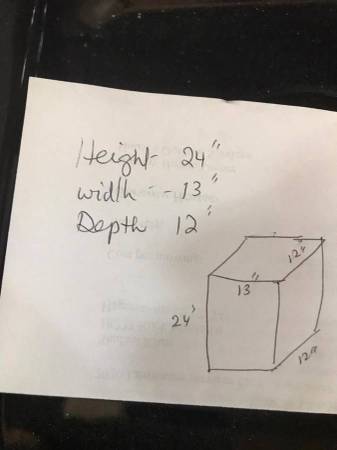 Height - 24"
width -- 13"
Depth 12"
12"
13"
24"
12"